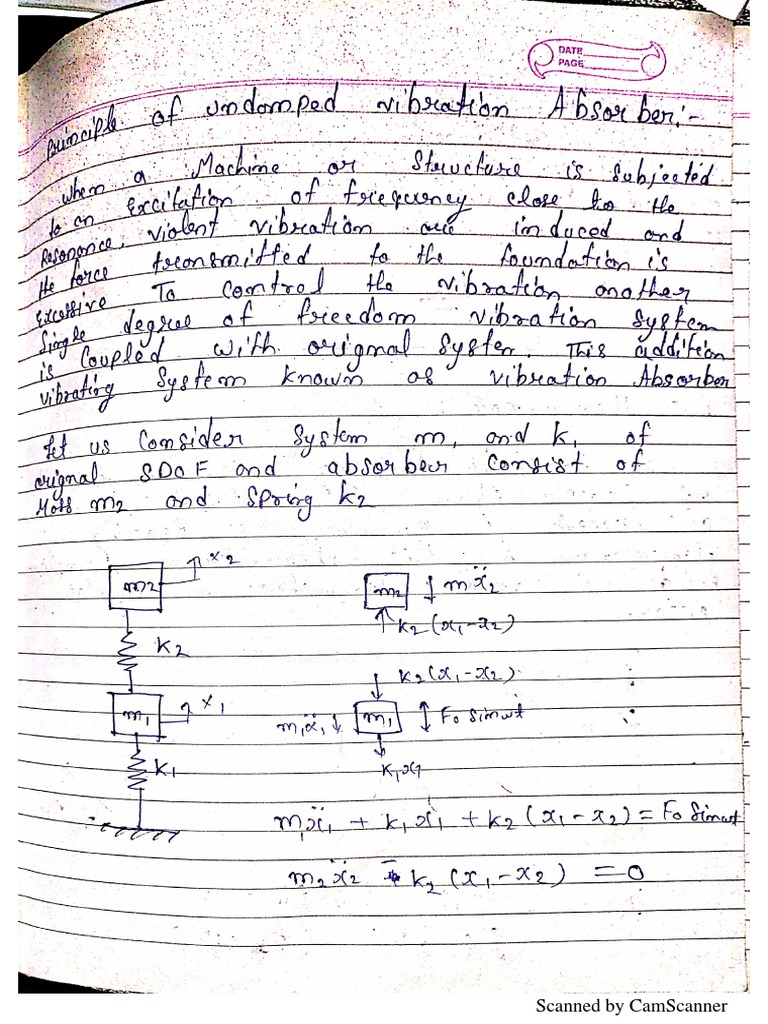 DATE
PAGE
Principle of undamped vibration Absorber:-
When a Machine or Structure is subjected
to an Excitation of frequency close to the
Resonance, violent vibration are induced and
the force transmitted to the foundation is
Excessive To Control the vibration another
Single degree of freedom vibration system
is Coupled with orignal System. This addition
vibrating System known as vibration Absorber
Let us Consider System m1 and k1 of
orignal SDOF and absorber Consist of
Mass m2 and Spring k2
m2 x2
k2
m1 x1
k1
m2 mẍ2
k2(x1-x2)
k2(x1-x2)
m1ẍ1 m1 Fo Sinωt
k1x1
m1ẍ1 + k1x1 + k2(x1-x2) = Fo Sinωt
m2ẍ2 - k2(x1-x2) = 0
Scanned by CamScanner